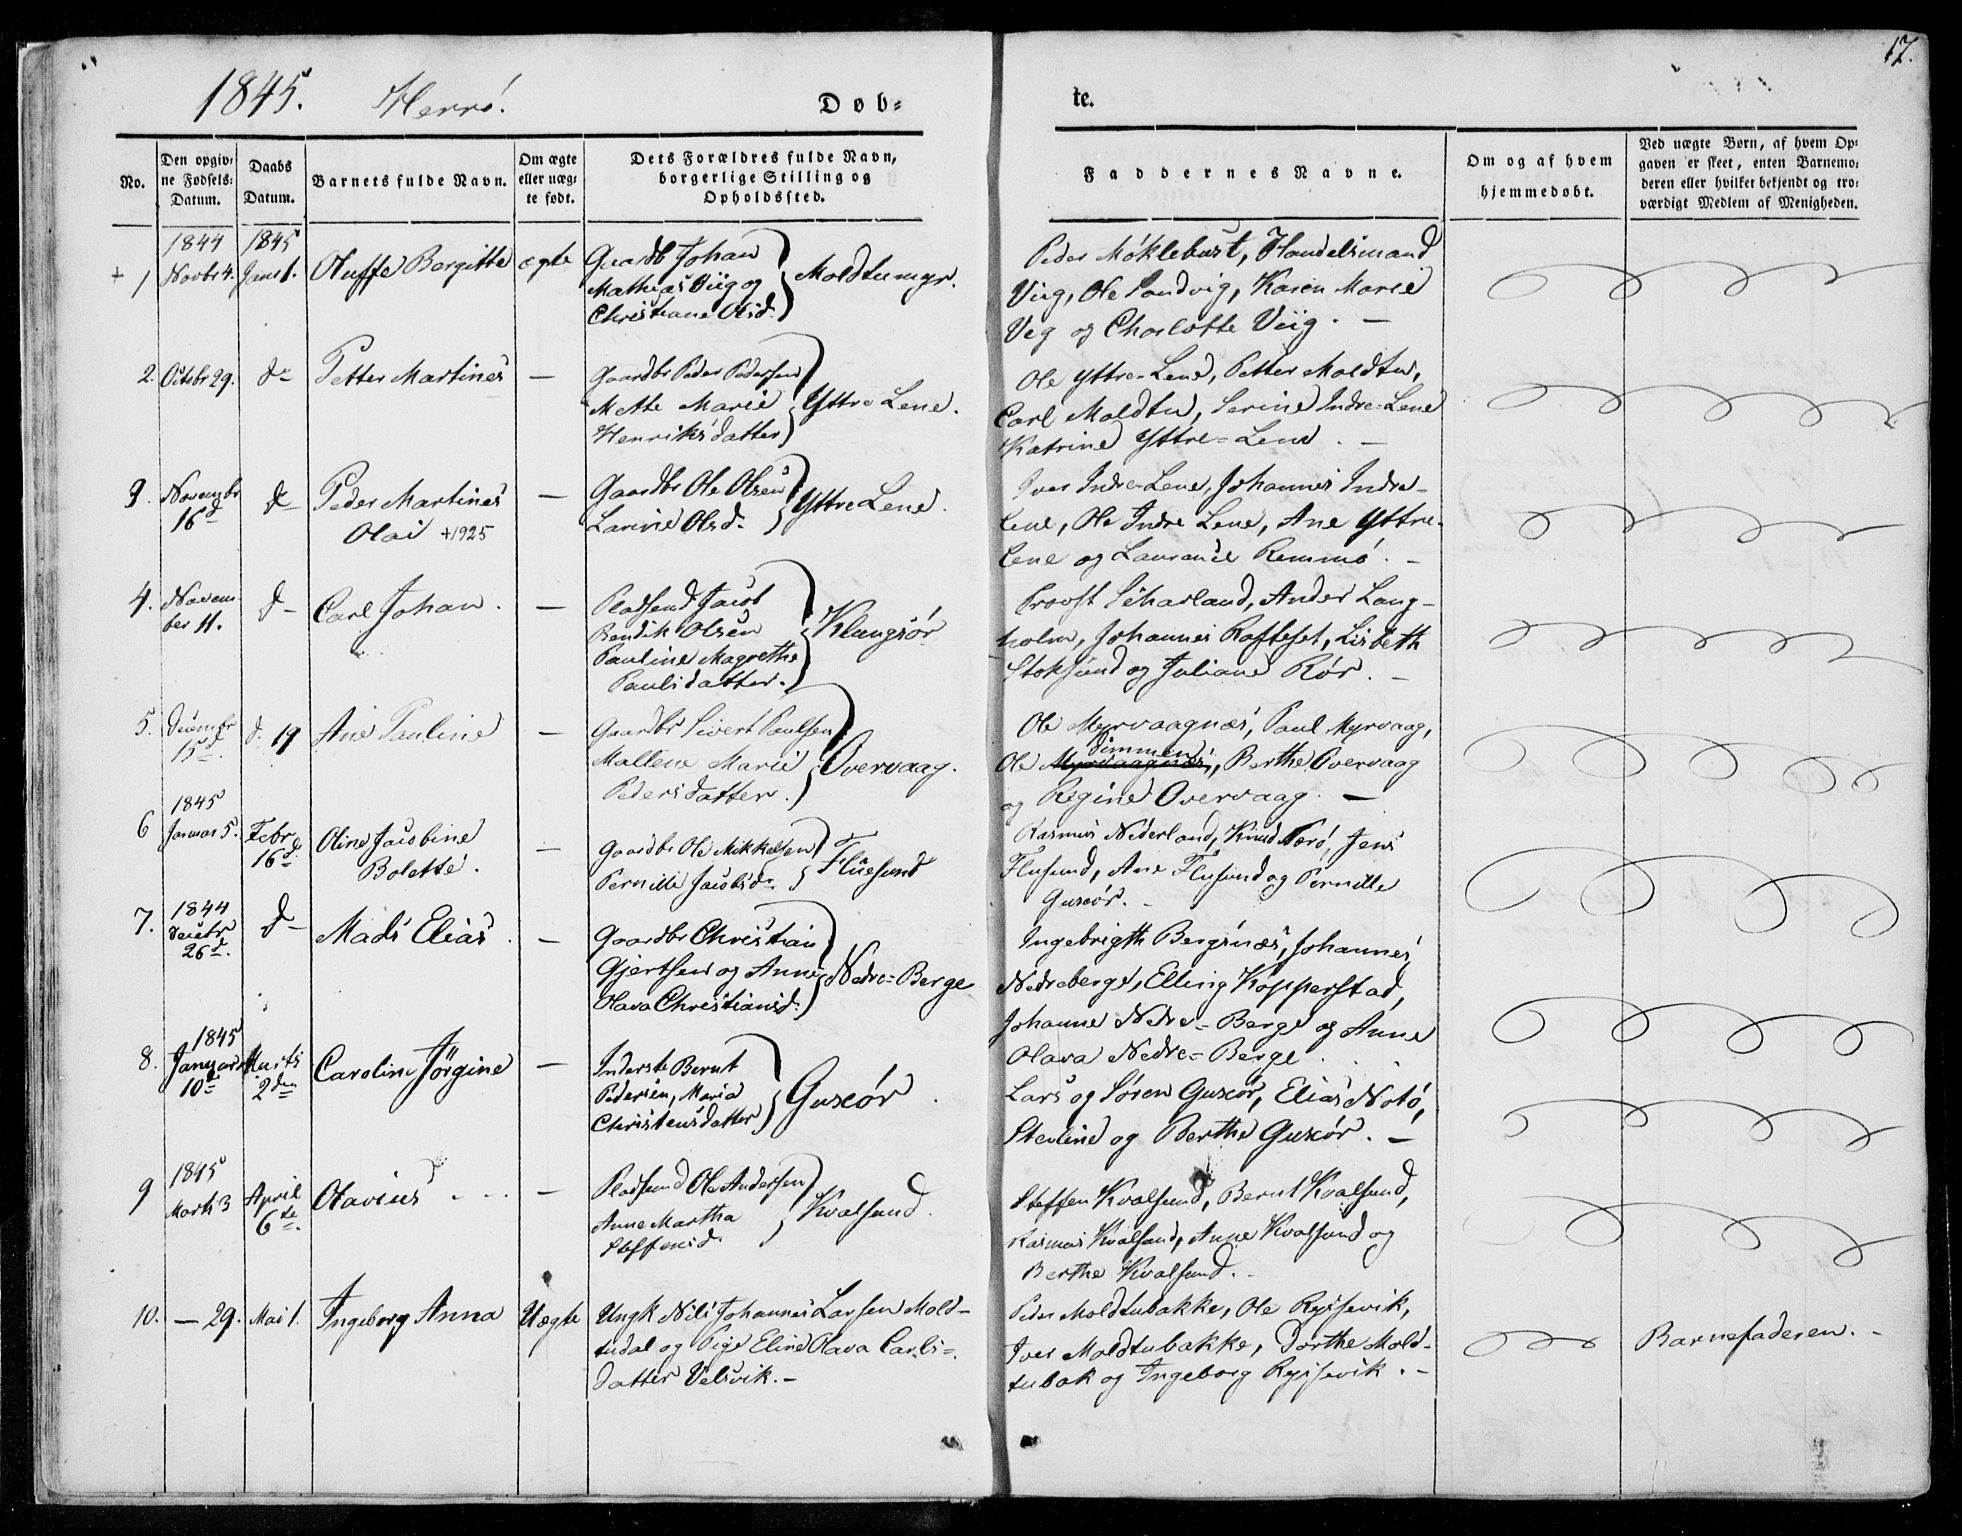 1845. Herrö. Døb-
te. 17.
No.
Den opgiv-
ne Fødsels-
Datum.
Daabs
Datum.
Barnets fulde Navn.
Om ægte
eller uæg-
te født.
Dets Forældres fulde Navn,
borgerlige Stilling og
Opholdssted.
Faddernes Navne.
Om og af hvem
hjemmedøbt.
Ved uægte Børn, af hvem Op-
gaven er skeet, enten Barnemo-
deren eller hvilket bekjendt og tro-
værdigt Medlem af Menigheden.
+ 1
1844
Novbr 4.
1845
Janr 1.
Oluffe Bergitte
ægte
Gaardb Johan
Mathias Viig og
Christiane Olsd.
Moldtumyr.
Peder Möklebust, Handelsmand
Viig, Ole Sandvig, Karen Marie
Veg og Charlotte Viig. —
2.
Octobr 29.
do
Petter Martines
—
Gaardbr Peder Pedersen
Mette Marie
Henriksdatter
Yttre Lene.
Ole Yttre-Lene, Petter Moldtu,
Carl Moldtu, Serine Indre-Lene
Katrine Yttre-Lene. —
3.
Novembr
16d
do
Peder Martines
Olai +1925
—
Gaardbr Ole Olsen
Larine Olsd.
Yttre Lene.
Iver Indre-Lene, Johannes Indre-
Lene, Ole Indre Lene, Ane Yttre-
Lene og Laurence Remmö. —
4.
Novem
ber 11.
d-
Carl Johan.
—
Pladsmd Jacob
Bendik Olsen
Pauline Magrethe
Paulsdatter.
Klungsör
Provst Scharland, Ander Lang-
holm, Johannes Rafteset, Lisbeth
Stoksund og Juliane Rör. —
5.
Decembr
15d.
d. 19
Ane Pauline
—
Gaardbr Sivert Paulsen
Mallene Marie
Pedersdatter.
Overvaag.
Ole Myrvaagnæs, Paul Myrvaag,
Dimmen
Ole Myrvaagnæs, Berthe Overvaag
og Regine Overvaag. —
6
1845
Januar 5.
Febr
16d
Oline Jacobine
Bolette.
—
Gaardbr Ole Mikkelsen
Pernille Jacobsd.
Fluesund
Rasmus Nederland, Knud Nerö, Jens
Flusund, Ane Flusund og Pernille
Guscör. -
7.
1844
Decbr
26d.
d-
Mads Elias.
—
Gaardbr Christian
Gjertsen og Anne
Olava Christiansd.
Nedre-Berge
Ingebrigth Bergsnæs, Johannes
Nedreberge, Elling Kopperstad,
Johanne Nedre-Berge og Anne
Olava Nedre-Berge
8.
1845
Januar
10d
Marts
2den
Caroline Jörgine
—
Inderste Bernt
Pedersen, Maria
Christensdatter
Guscör.
Lars og Sören Guscör, Elias Notö,
Stevline og Berthe Guscör. —
9
1845
Marts 3
April
6te.
Olavius
—
Pladsmd Ole Andersen
Anne Martha
Steffensd.
Kvalsund.
Steffen Kvalsund, Bernt Kvalsund,
Rasmus Kvalsund, Anne Kvalsund og
Berthe Kvalsund. -
10.
— 29.
Mai 1.
Ingeborg Anna
Uægte
Ungk Nils Johannes Larsen Mold-
tudal og Pige Eline Olava Carls-
datter Velsvik. —
Peder Moldtubakke, Ole Ryssevik,
Iver Moldtubakke, Dorthe Mold-
tubak og Ingeborg Ryssevik. -
Barnefaderen. -